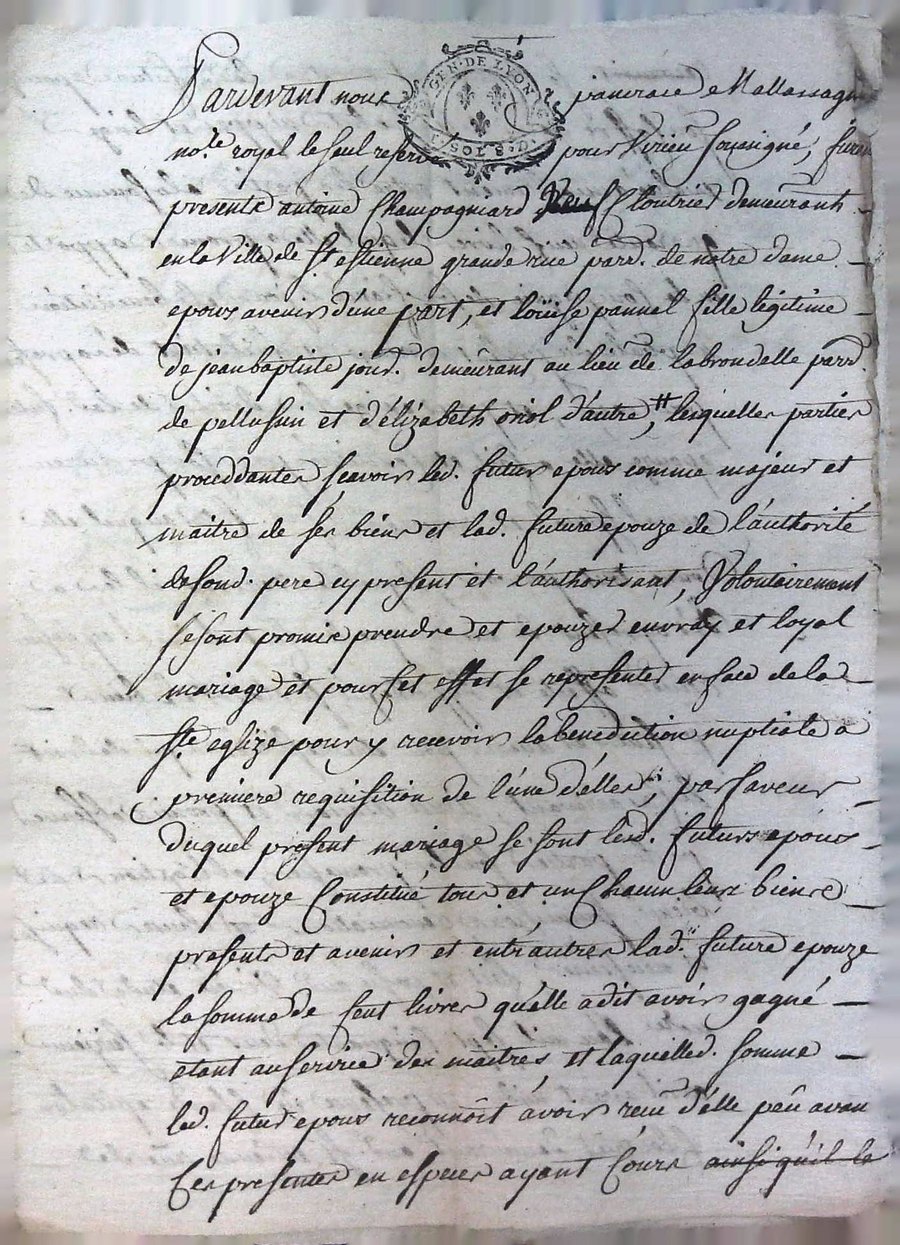 Pardevant nous pancrace e Mallassagn
GEN·DE LYON
no.re royal le seul reservé pour Virieu soussigné, furen
presents antoine Champagniard Cloutrier demeurant
en la Ville de St. estienne grande rue parr. de notre dame
epoux avenir d'une part, et loüise pannel fille legitime
de jean baptiste jour.d. demeurant au lieu de labrondelle parr.
de pellussin et d'élizabeth oriol d'autre, lesquelles parties
proceddantes sçavoir led. futur epoux comme majeur et
maitre de ses biens et lad. future epouze de l'authorité
de sond. pere cy present et l'authorisant, Volontairement
se sont promis prendre et epouzer en vray et loyal
mariage et pour cet effet se representer en face de la
Ste. eglize pour y recevoir la benediction nuptiale a
premiere requisition de l'une d'elles, par faveur
duquel present mariage se sont lesd. futurs epoux
et epouze Constitué tous et un Chacun leurs biens
presents et avenirs et entr'autres lad. future epouze
la somme de Cent livres qu'elle a dit avoir gagné
etant au service des maitres et laquelled. somme
led. futur epoux reconnoit avoir reçu d'elle peû avan
Ces presentes en especes ayant Cours ainsi qu'il le